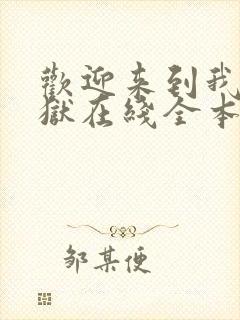 歡迎来到我
獄在綫全本
邹某便